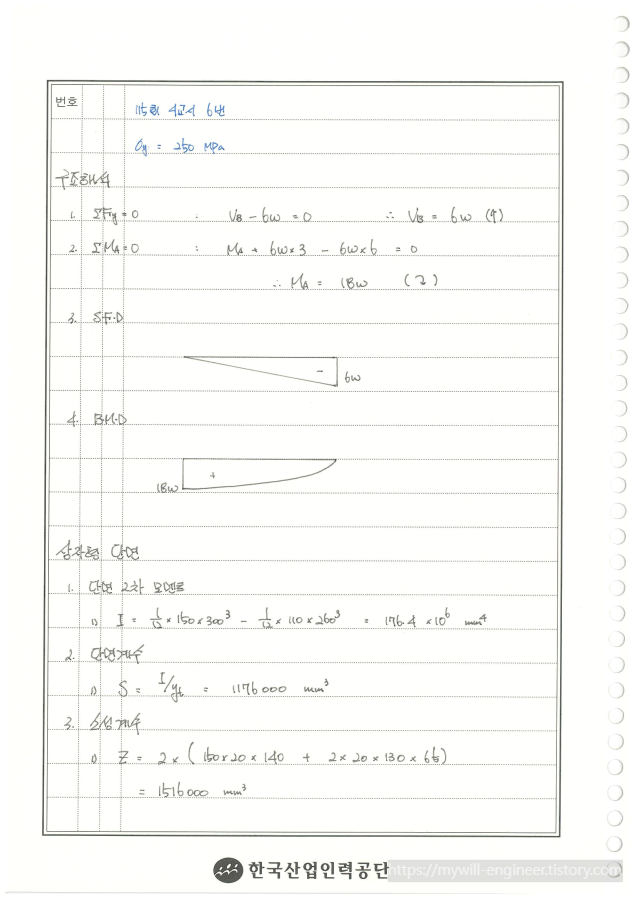 번호
115회 4교시 6번
σy = 250 MPa
구조해석
1. ΣFy = 0 : VB - 6w = 0 ∴ VB = 6w (↑)
2. ΣMA = 0 : MA + 6w×3 - 6w×6 = 0
∴ MA = 18w (⤵)
3. S.F.D
- 6w
4. B.M.D
18w +
상자형 단면
1. 단면 2차 모멘트
1) I = 1/12 × 150×300³ - 1/12 × 110×260³ = 176.4 ×10⁶ mm⁴
2. 단면계수
1) S = I/yt = 1176000 mm³
3. 소성계수
1) Z = 2× ( 150×20×140 + 2×20×130×65 )
= 1516000 mm³
한국산업인력공단
https://mywill-engineer.tistory.com